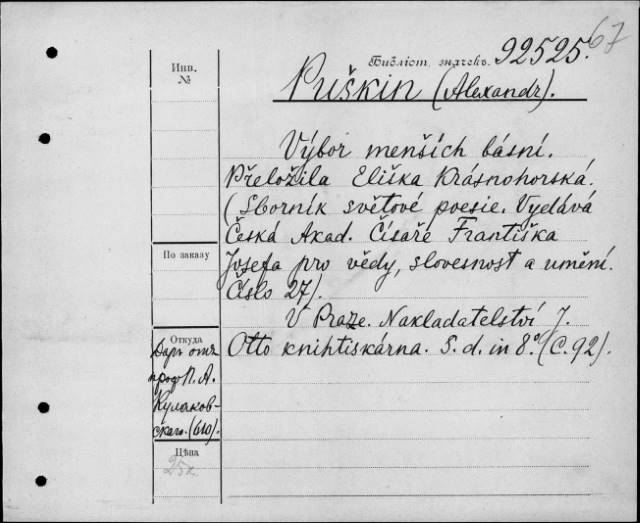 Библіот. значекъ. 92525. 67
Инв.
№
Puškin (Alexandr).
Výbor menších básní.
Přeložila Eliška Krásnohorská.
(Sborník světové poesie. Vydává
Česká Akad. Čísaře Františka
По заказу
Josefa pro vědy, slovesnost a umění.
Číslo 27).
V Praze. Nakladatelství J.
Откуда
Otto knihtiskárna. S. d. in 8.° (С. 92).
Даръ отъ
проф. П. А.
Кулаков-
скаго. (610).
Цѣна
25к